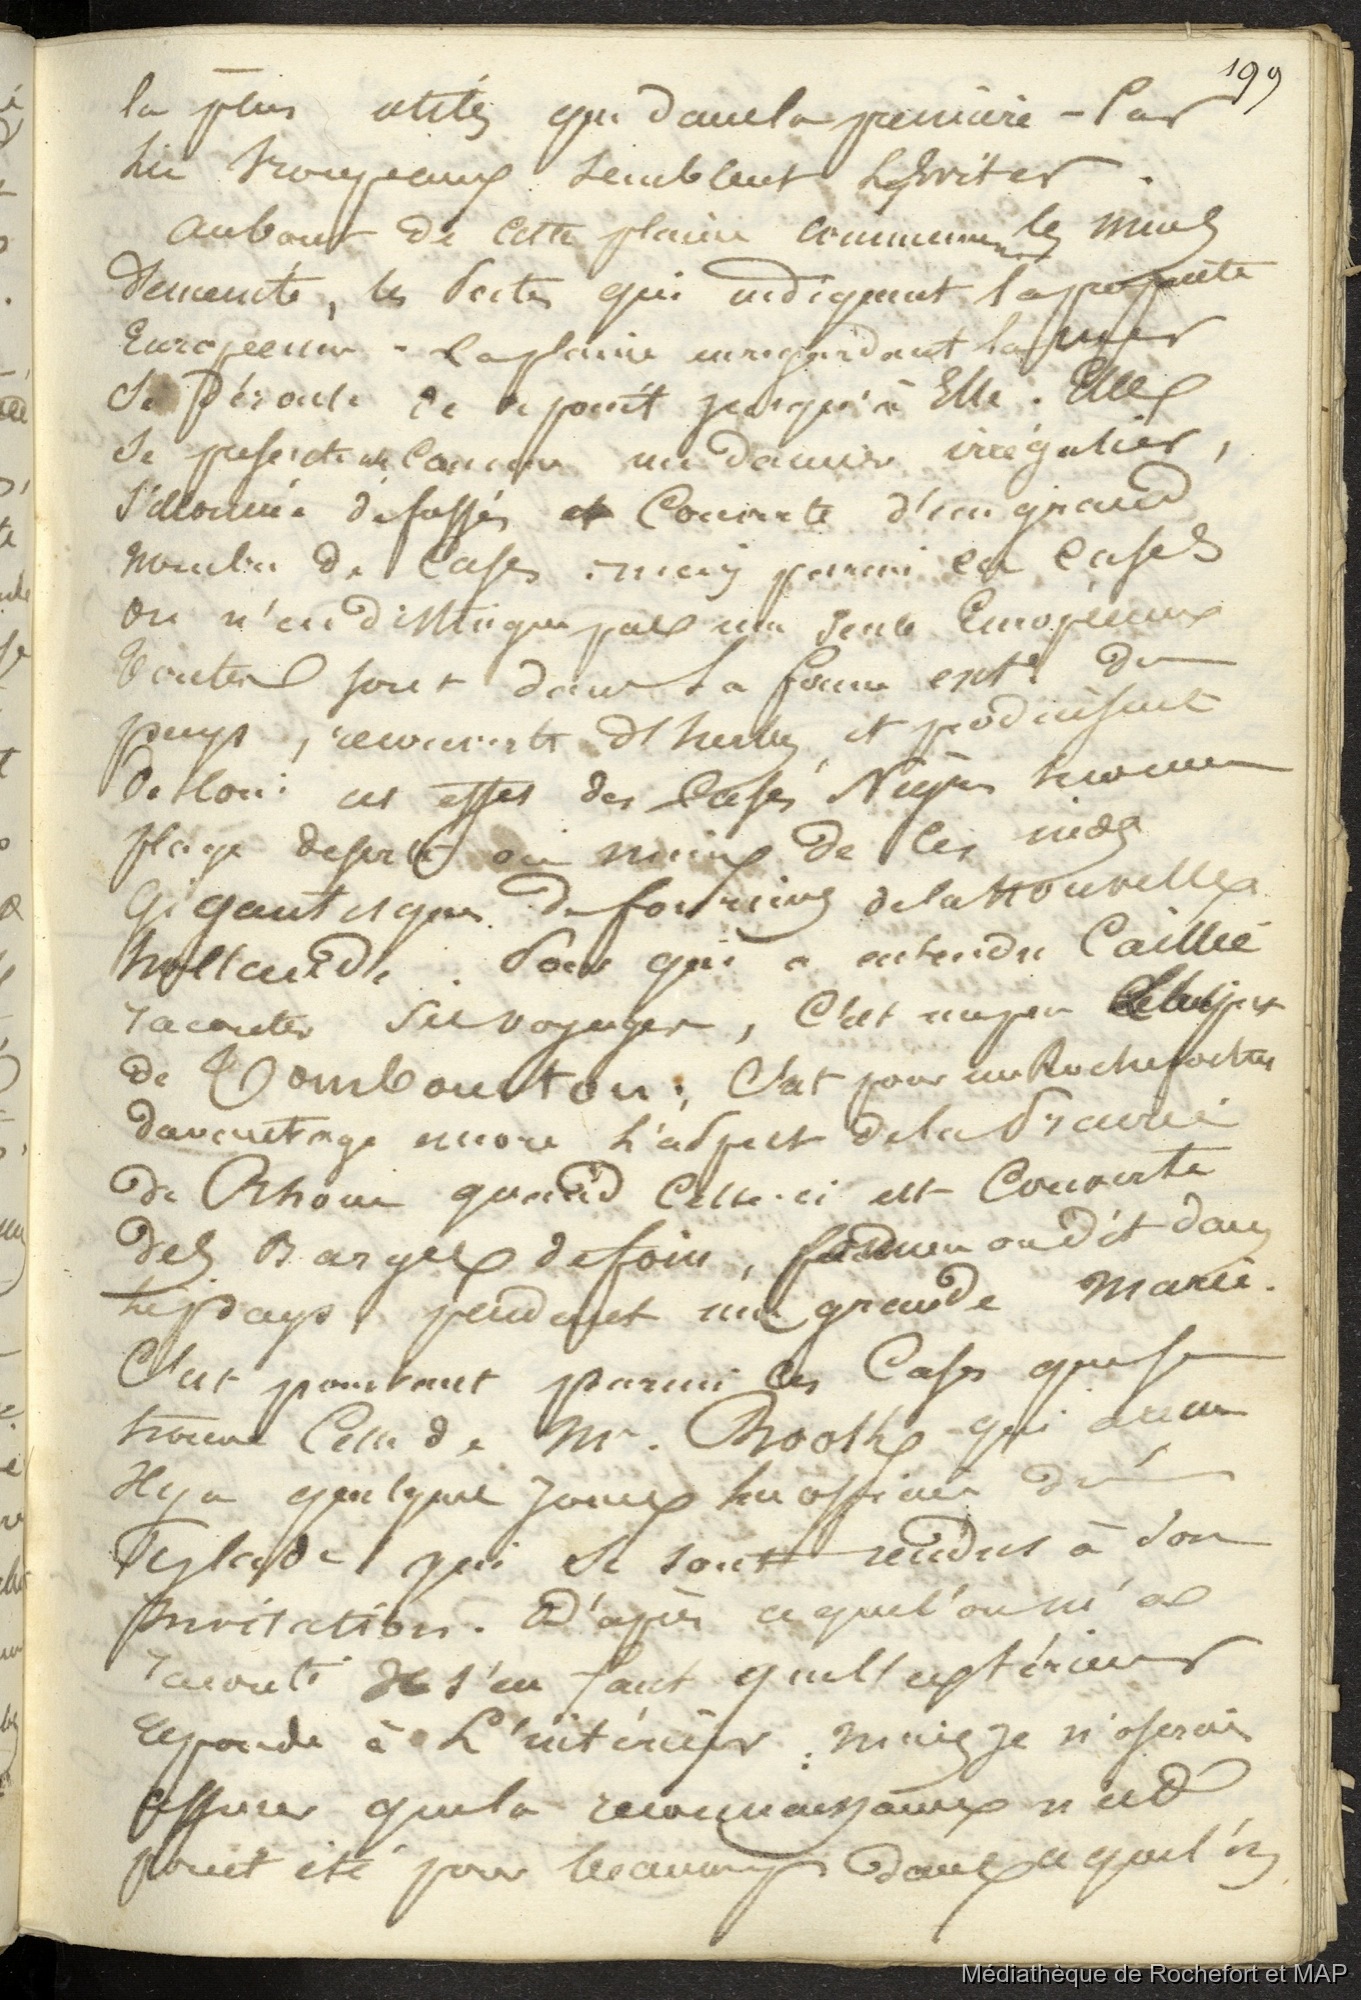 199
la plus utiles que dans la première - Car
les troupeaux semblent
Au bout de cette plaine commencent les murs
d'enceinte, les portes qui indiquent la propriété
Européenne - la plaine en regardant la mer
se déroule de ce point jusqu'à Elle. Elle
se présente comme un damier irrégulier,
sillonnée de fossés et Couverte d'un grand
nombre de Cases : mais parmi ces Cases
on n'en distingue pas une seule Européenne
toutes sont dans la forme de
pays, recouverte d'herbe, et produisant
de loin cet effet des Cases Nègres
plage deserte ou mieux de ces nids
Gigantesques de fourmis de la Nouvelle
hollande. Pour qui a entendu Caillié
raconter ses voyages, C'est un peu
de Tombouctou ; C'est pour un Rochefortin
davantage encore l'aspect de la Prairie
de Rhone quand Celle-ci est Couverte
des Barges de foin, on dit dans
le pays, pendant une grande Marée.
C'est pourtant parmi ces Cases que se
trouve Celle de Mr. Brooth qui a reçu
Il y a quelques jours les officiers de
l'Eglade qui se sont rendus à son
invitation. D'après ce que l'on m'a
raconté Il s'en faut que l'extérieur
réponde à L'intérieur : mais je n'oserais
assurer que la reconnaissance n'eut
point été pour beaucoup dans ce que l'on
Médiathèque de Rochefort et MAP